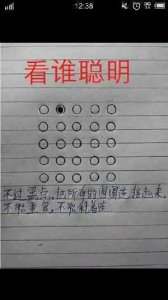 12:38
看谁聪明
不过黑点,把所有的圆圈连接起来,
不能重复,不能斜着连